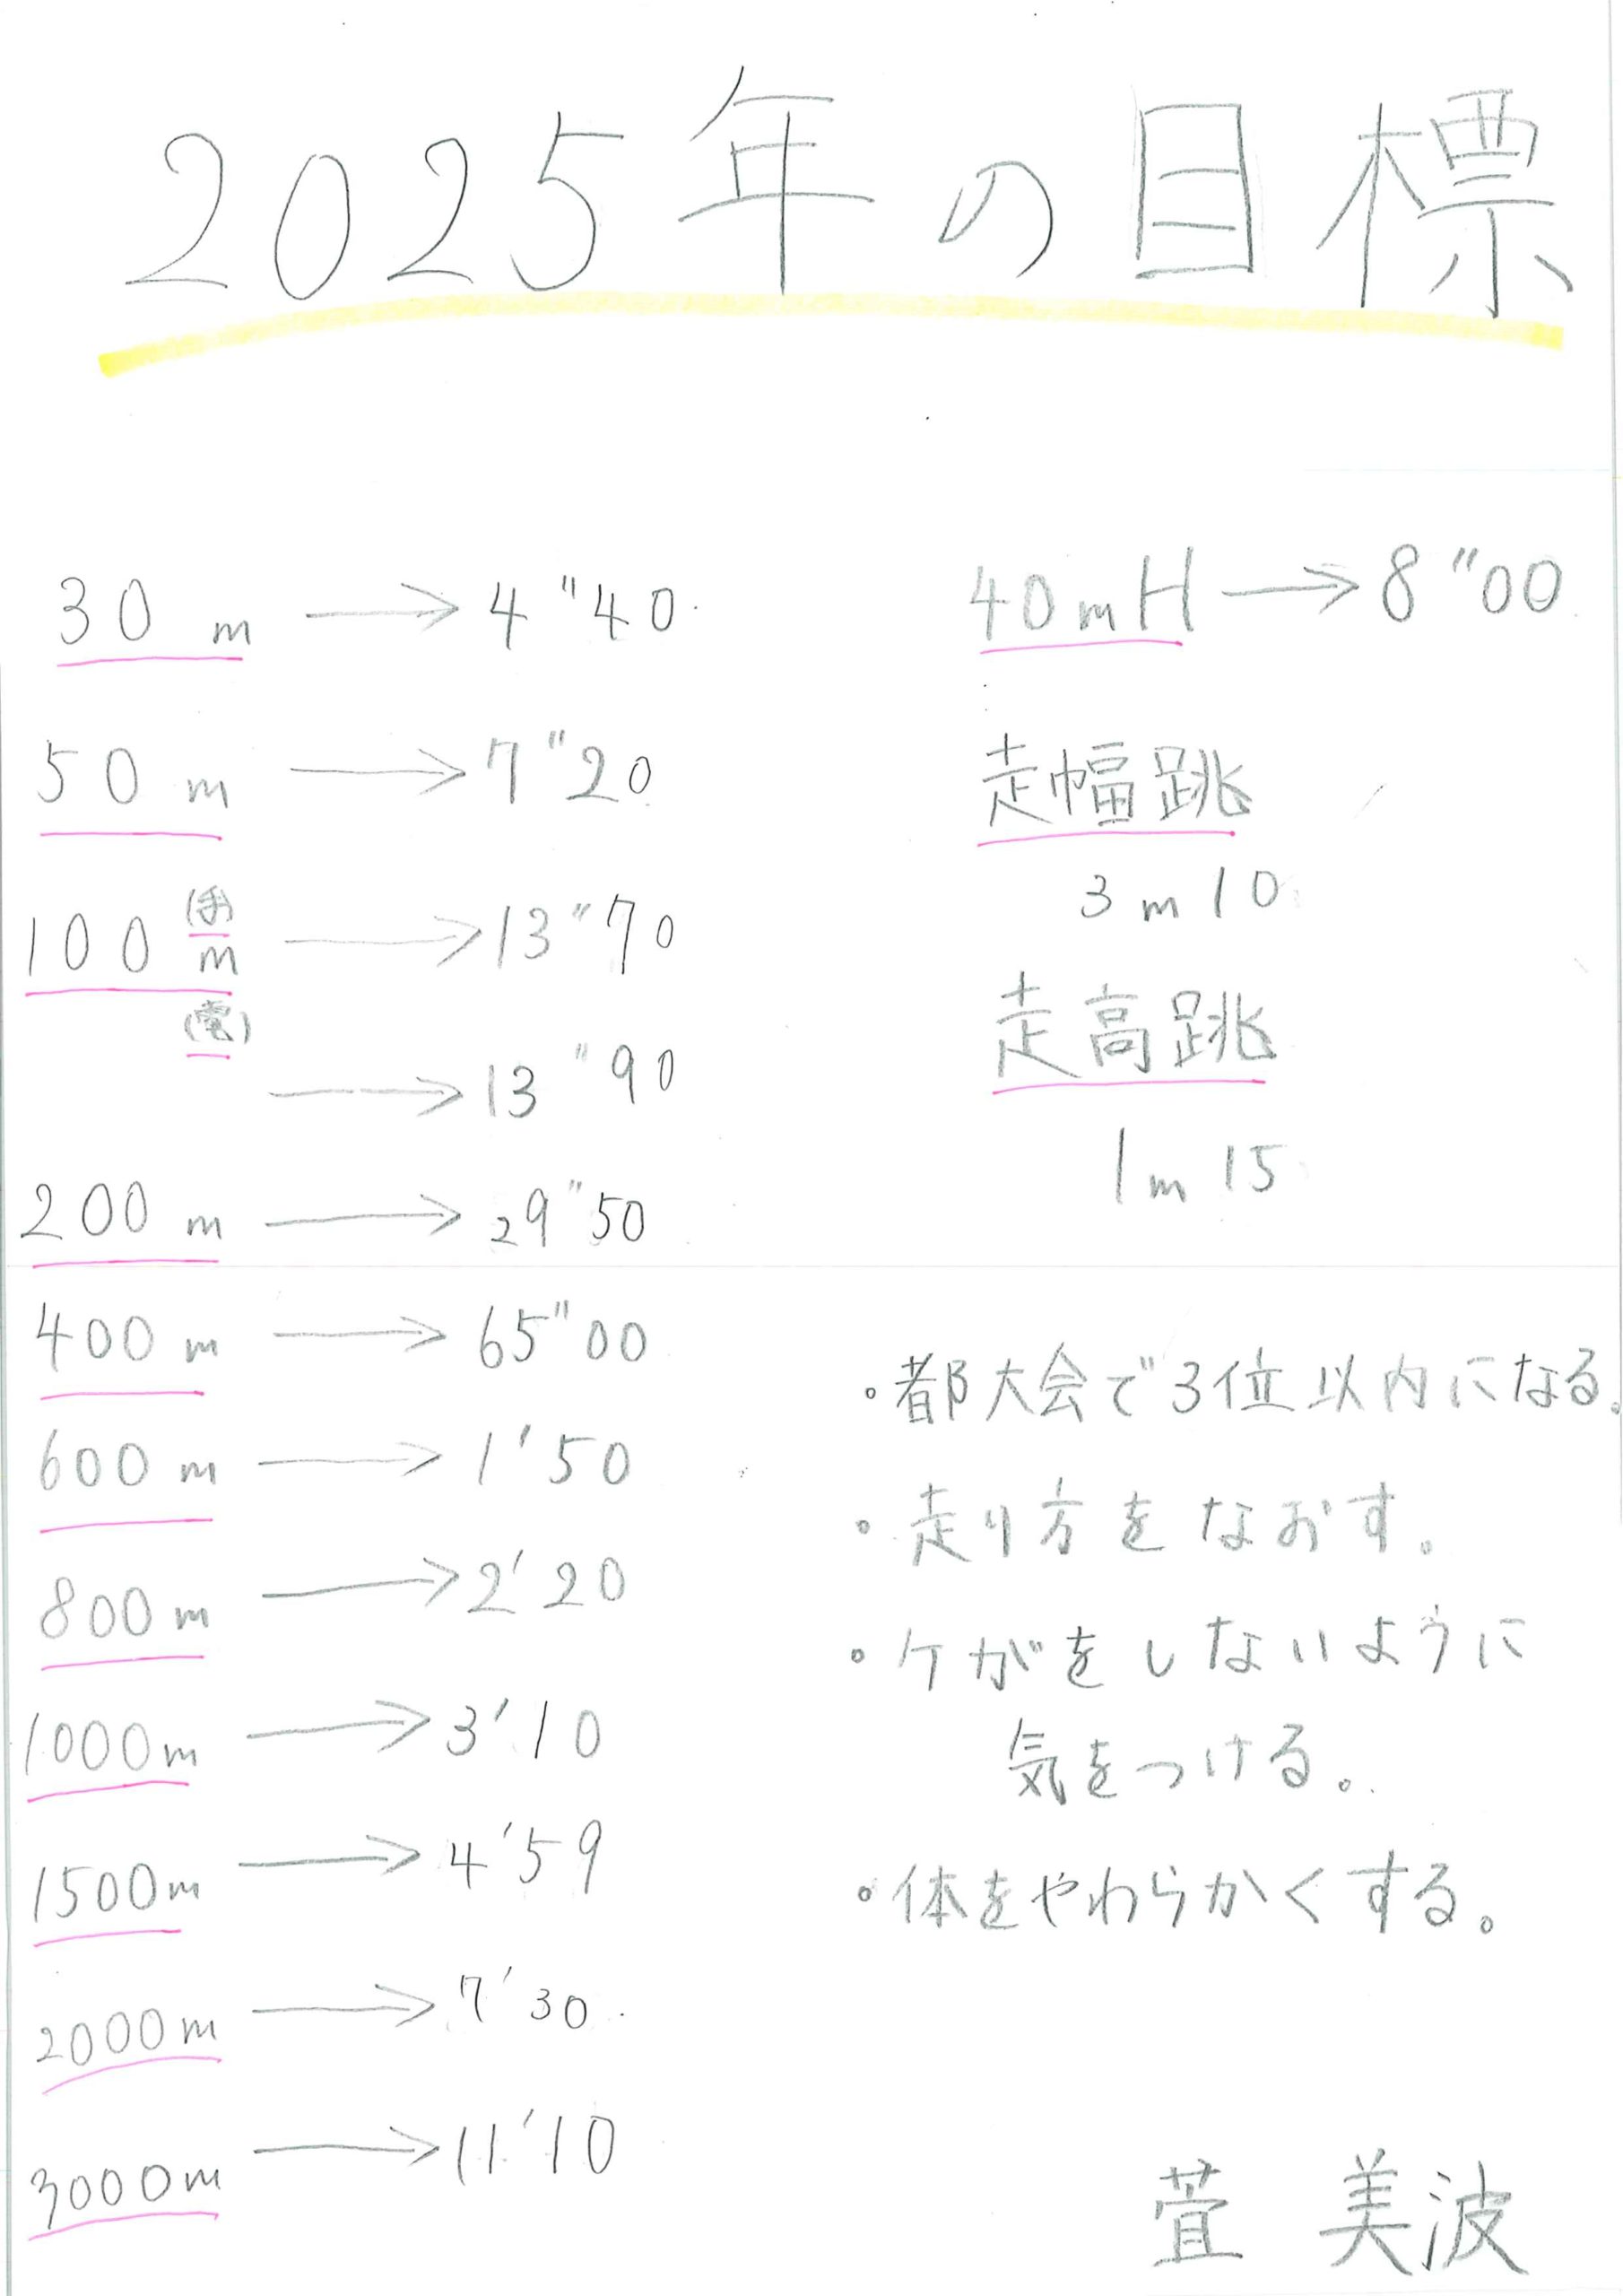 2025年の目標
30m → 4"40
50m → 7"20
(手)
100m → 13"70
(電)
→ 13"90
200m → 29"50
400m → 65"00
600m → 1'50
800m → 2'20
1000m → 3'10
1500m → 4'59
2000m → 7'30
3000m → 11'10
40mH → 8"00
走幅跳
3m10
走高跳
1m15
・都大会で3位以内になる。
・走り方をなおす。
・ケガをしないように
気をつける。
・体をやわらかくする。
萱 美波